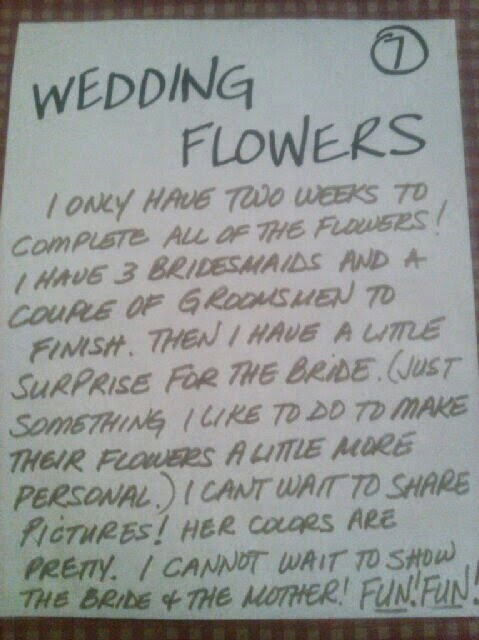 7
WEDDING
FLOWERS
I ONLY HAVE TWO WEEKS TO
COMPLETE ALL OF THE FLOWERS!
I HAVE 3 BRIDESMAIDS AND A
COUPLE OF GROOMSMEN TO
FINISH. THEN I HAVE A LITTLE
SURPRISE FOR THE BRIDE. (JUST
SOMETHING I LIKE TO DO TO MAKE
THEIR FLOWERS A LITTLE MORE
PERSONAL.) I CANT WAIT TO SHARE
PICTURES! HER COLORS ARE
PRETTY. I CANNOT WAIT TO SHOW
THE BRIDE & THE MOTHER! FUN! FUN!